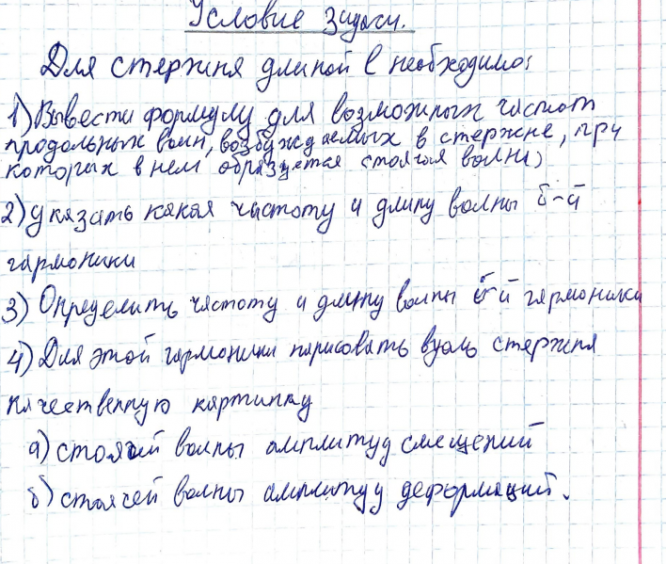 Условие задачи.
Для стержня длиной l необходимо:
1) Вывести формулу для возможных частот
продольных волн, возбуждаемых в стержне, при
которых в нем образуется стоячая волна;
2) указать какая частоту и длину волны 5-й
гармоники
3) Определить частоту и длину волны 5-й гармоники
4) Для этой гармоники нарисовать вдоль стержня
качественную картинку
а) стоячей волны амплитуд смещений
б) стоячей волны амплитуд деформаций.